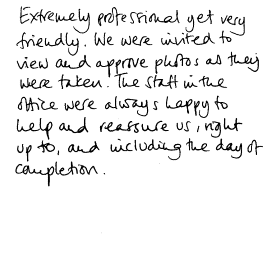 Extremely professional yet very
friendly. We were invited to
view and approve photos as they
were taken. The staff in the
office were always happy to
help and reassure us, right
up to, and including the day of
completion.